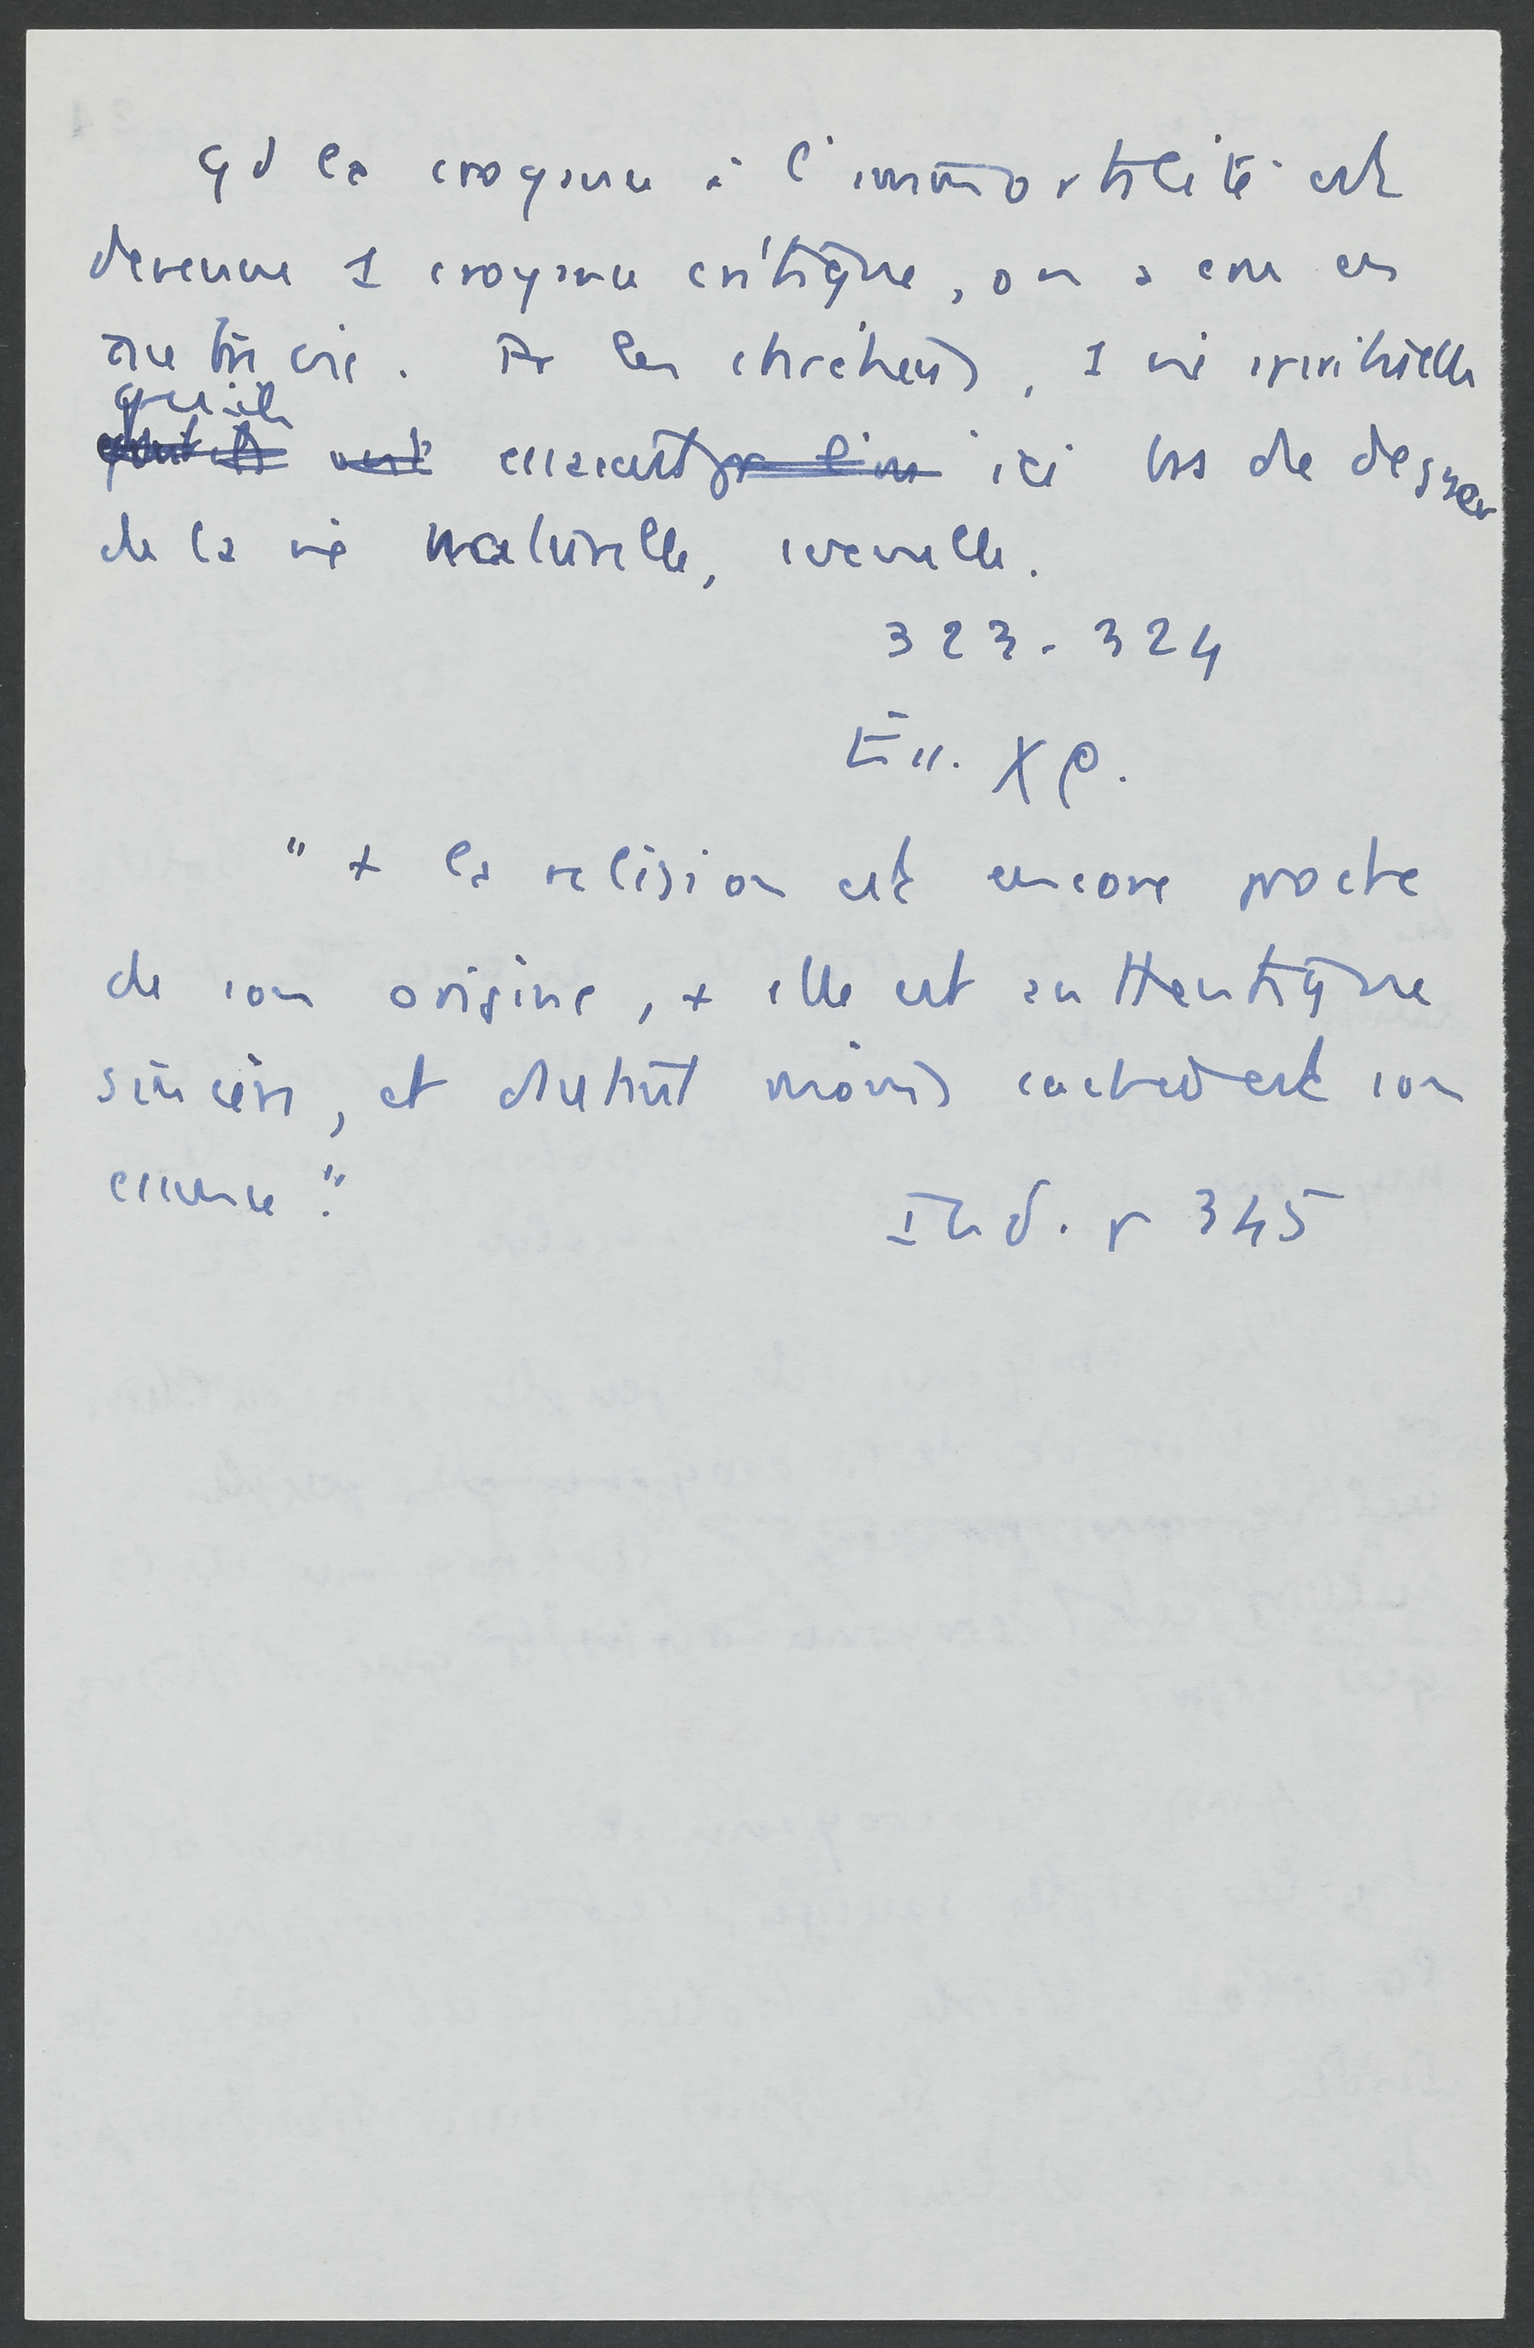 Qd la croyance à l'immortalité est
devenue 1 croyance critique, on a cru en
1 autre vie. Pr les chrétiens, 1 vie spirituelle
qu'ils
essaient ici bas de dégager
de la vie naturelle, sensuelle.
323-324
Ess. Xe.
"+ la religion est encore proche
de son origine, + elle est authentique
sincère, et d'autant moins caché est son
essence."
Ibid. p 345